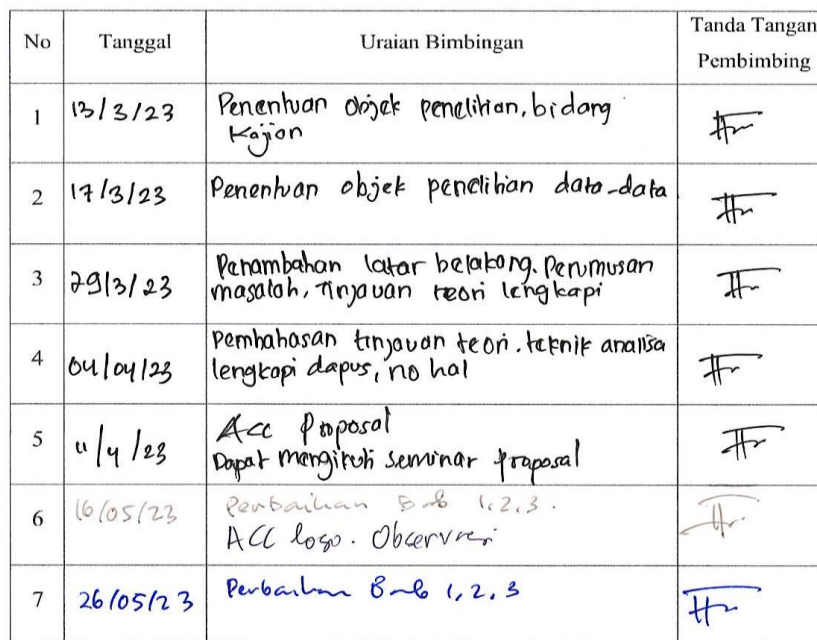 No Tanggal Uraian Bimbingan Tanda Tangan
Pembimbing
1 13/3/23 Penentuan objek penelitian, bidang
kajian
2 17/3/23 Penentuan objek penelitian data-data
3 29/3/23 Penambahan latar belakang. perumusan
masalah, Tinjauan teori lengkapi
4 04/04/23 Pembahasan tinjauan teori. teknik analisa
lengkapi dapus, no hal
5 11/4/23 Acc Proposal
Dapat mengikuti seminar proposal
6 16/05/23 Perbaikan Bab 1.2.3.
ACC Observasi
7 26/05/23 Perbaikan Bab 1,2,3